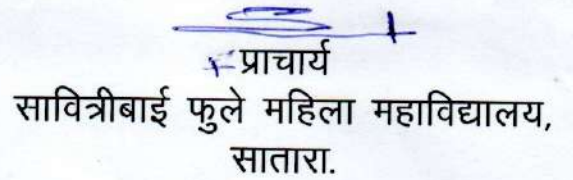 प्राचार्य
सावित्रीबाई फुले महिला महाविद्यालय,
सातारा.